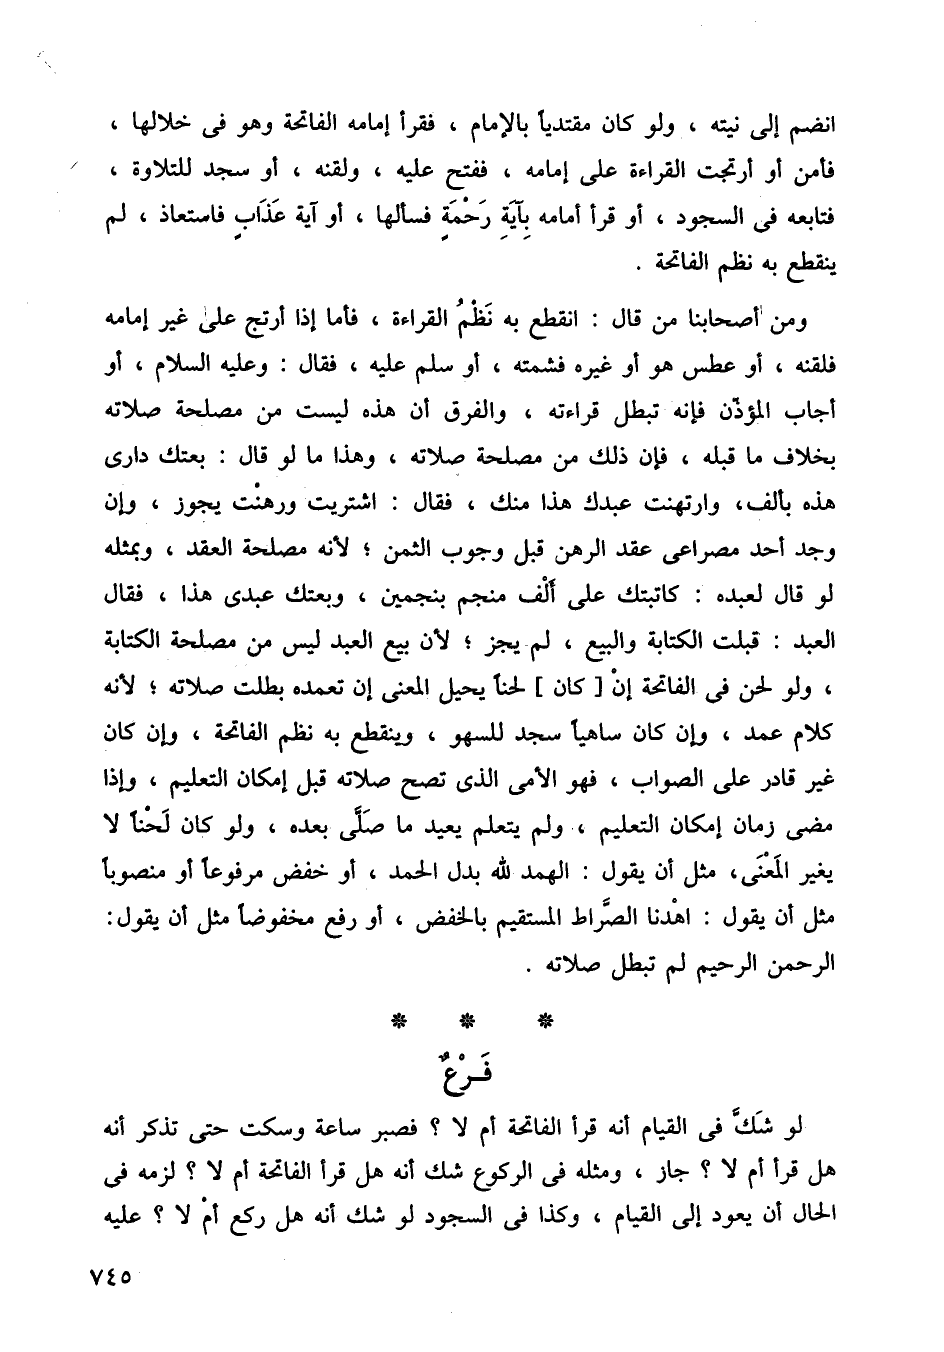 انضم إلى نيته ، ولو كان مقتدياً بالإمام ، فقرأ إمامه الفاتحة وهو فى خلالها ،
فأمن أو أرتجت القراءة على إمامه ، ففتح عليه ، ولقنه ، أو سجد للتلاوة ،
فتابعه فى السجود ، أو قرأ أمامه بِآيَةِ رَحْمَةٍ فسألها ، أو آية عَذَابٍ فاستعاذ ، لم
ينقطع به نظم الفاتحة .
ومن أصحابنا من قال : انقطع به نَظْمُ القراءة ، فأما إذا أرتج على غير إمامه
فلقنه ، أو عطس هو أو غيره فشمته ، أو سلم عليه ، فقال : وعليه السلام ، أو
أجاب المؤذّن فإنه تبطل قراءته ، والفرق أن هذه ليست من مصلحة صلاته
بخلاف ما قبله ، فإن ذلك من مصلحة صلاته ، وهذا ما لو قال : بعتك دارى
هذه بألف، وارتهنت عبدك هذا منك ، فقال : اشتريت ورهنْت يجوز ، وإن
وجد أحد مصراعى عقد الرهن قبل وجوب الثمن ؛ لأنه مصلحة العقد ، وبمثله
لو قال لعبده : كاتبتك على أَلْف منجم بنجمين ، وبعتك عبدى هذا ، فقال
العبد : قبلت الكتابة والبيع ، لم يجز ؛ لأن بيع العبد ليس من مصلحة الكتابة
، ولو لحن فى الفاتحة إنْ [ كان ] لحناً يحيل المعنى إن تعمده بطلت صلاته ؛ لأنه
كلام عمد ، وإن كان ساهياً سجد للسهو ، وينقطع به نظم الفاتحة ، وإن كان
غير قادر على الصواب ، فهو الأمى الذى تصح صلاته قبل إمكان التعليم ، وإذا
مضى زمان إمكان التعليم ، ولم يتعلم يعيد ما صَلَّى بعده ، ولو كان لَحْناً لا
يغير المَعْنَى، مثل أن يقول : الهمد لله بدل الحمد ، أو خفض مرفوعاً أو منصوباً
مثل أن يقول : اهْدنا الصَّراط المستقيم بالخفض ، أو رفع مخفوضاً مثل أن يقول:
الرحمن الرحيم لم تبطل صلاته .
* * *
فَـرْعٌ
لو شَكَّ فى القيام أنه قرأ الفاتحة أم لا ؟ فصبر ساعة وسكت حتى تذكر أنه
هل قرأ أم لا ؟ جاز ، ومثله فى الركوع شك أنه هل قرأ الفاتحة أم لا ؟ لزمه فى
الحال أن يعود إلى القيام ، وكذا فى السجود لو شك أنه هل ركع أمْ لا ؟ عليه
٧٤٥